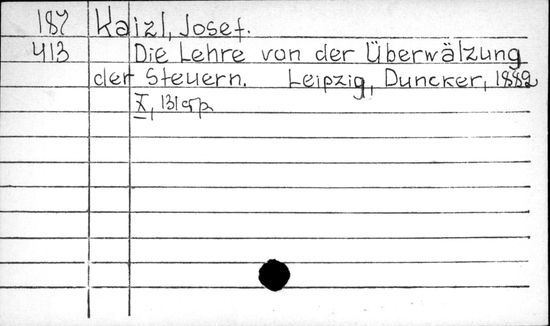 187 Kaizl, Josef.
413 Die Lehre von der Überwälzung
der Steuern. Leipzig, Duncker, 1882
X, 131